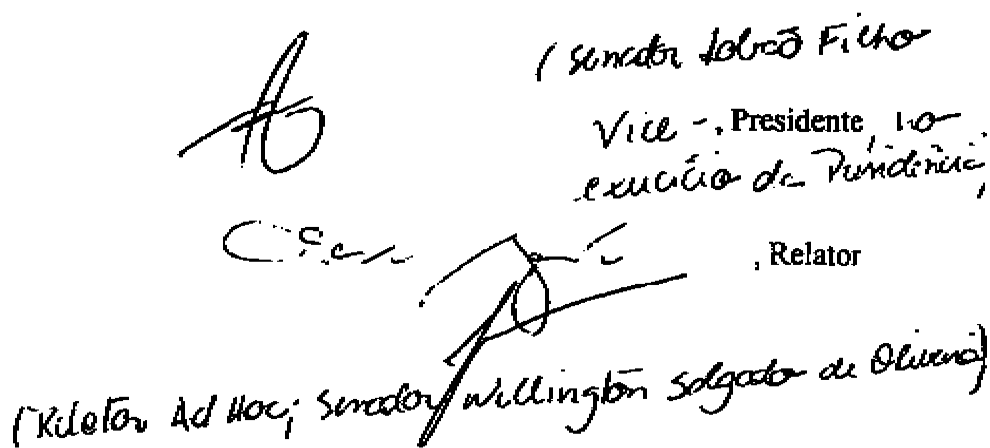 (Senador Lobão Filho
Vice-, Presidente, no
exercício da Presidência,
, Relator
(Relator Ad Hoc; Senador Wellington Salgado de Oliveira)